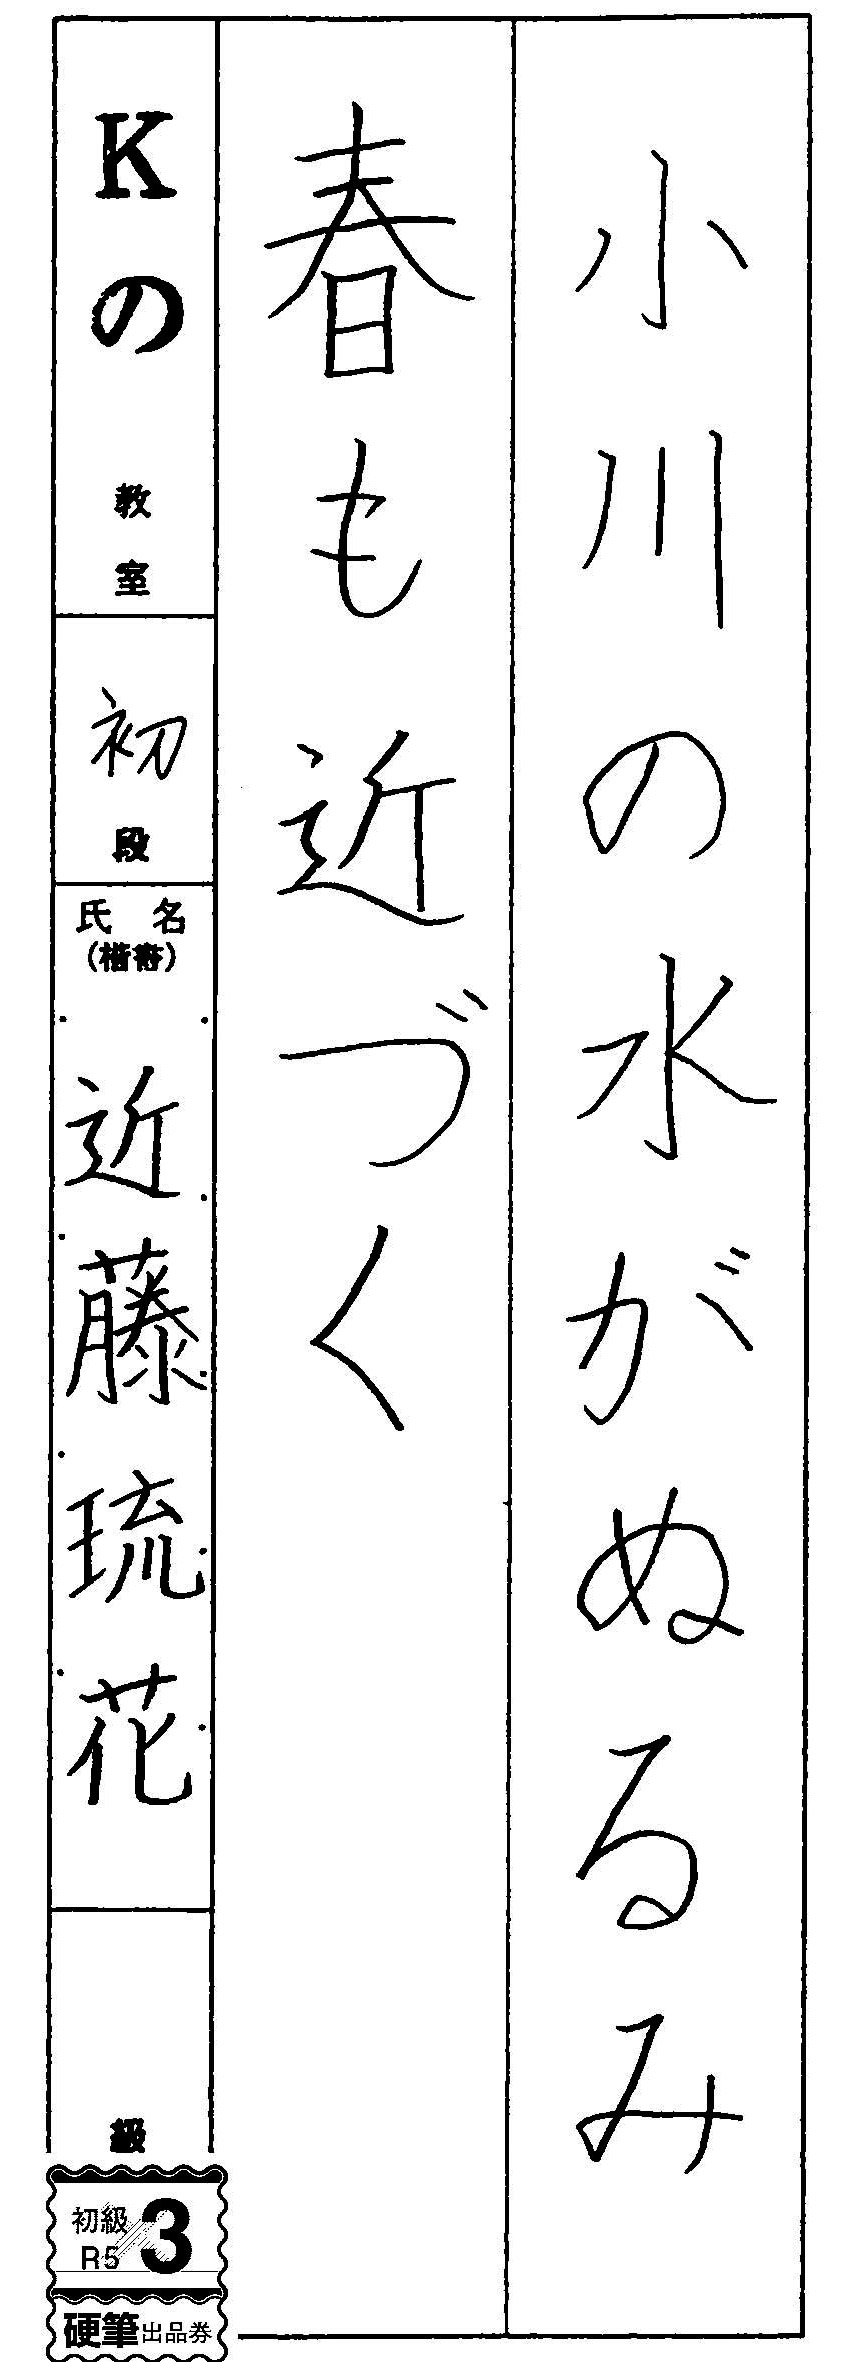 小川の水がぬるみ
春も近づく
Kの教室
初段
氏名
(楷書)
近藤琉花
級
初級
R5
3
硬筆出品券